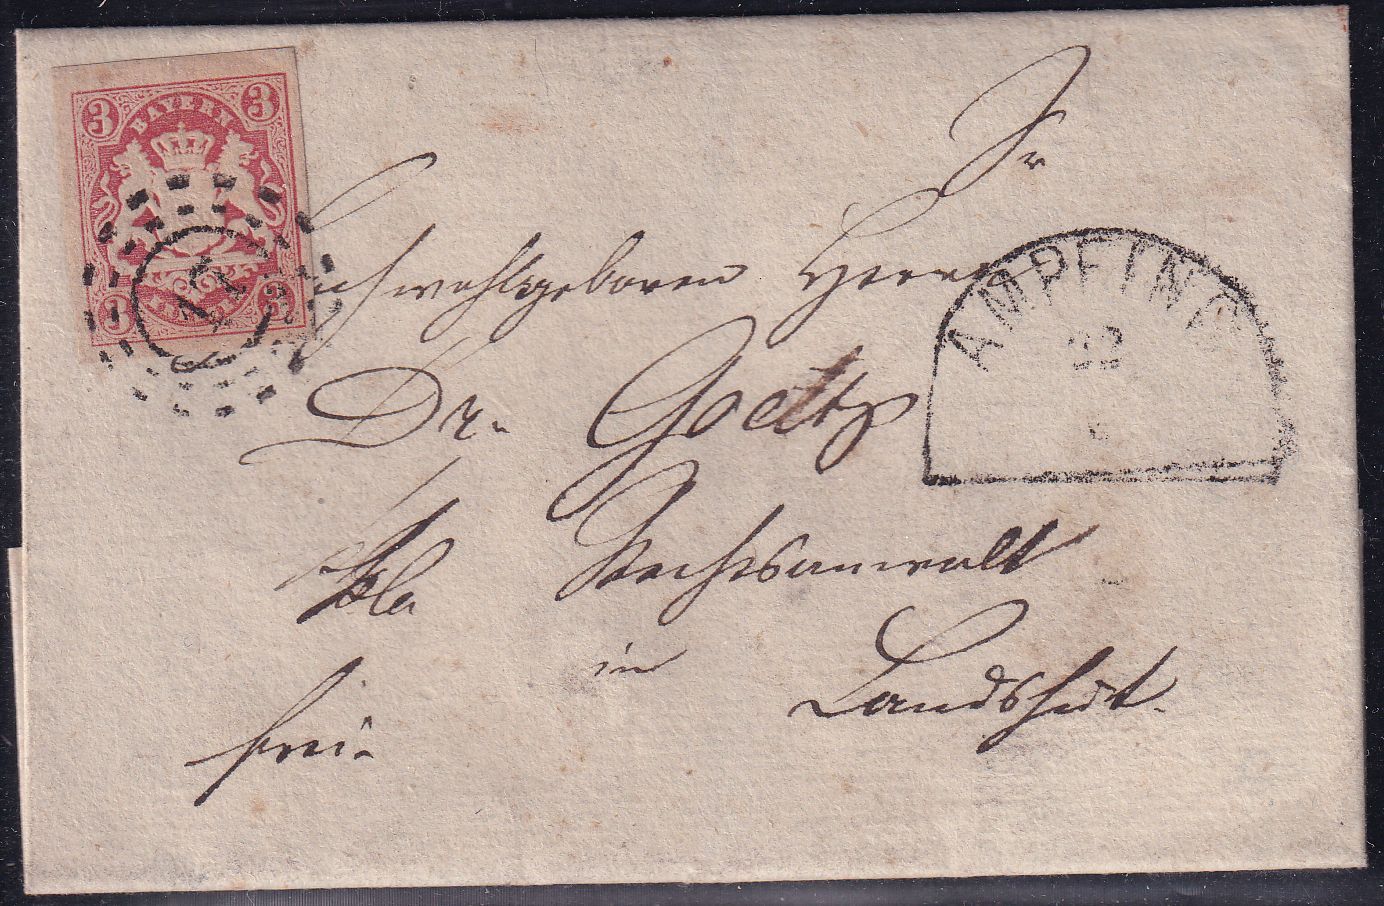 3 3
BAYERN
3 3
12
Sr
Hochwohlgeboren Herrn
AMPFING
22
6
Dr. Goeltz
Rechtsanwalt
in
Landshut.
frei.